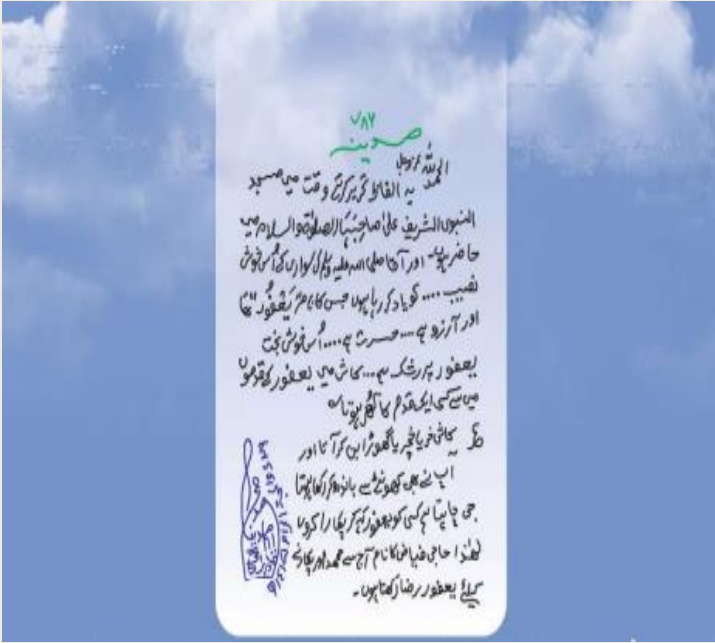 ۷۸۶
مدینہ
الحمدللہ عزوجل
یہ الفاظ تحریر کرتے وقت میں مسجد
النبوی الشریف علیٰ صاحبہا الصلوٰۃ والسلام میں
حاضر ہوں۔ اور آقا صلی اللہ علیہ وسلم کی سواری کے اُس خوش
نصیب .... کو یاد کر رہا ہوں جس کا نام "یَعْفُور" تھا
اور آرزو ہے .... حسرت ہے .... اُس خوش بخت
یعفور پہ رشک ہے ... کاش میں یعفور کے قدموں
میں سے کسی ایک قدم کا کُھر ہوتا
کاش خر یا خچر یا گھوڑا بن کر آتا اور
آپ نے بھی کھونٹے سے باندھ کر رکھا ہوتا
جی چاہتا ہے کسی کو یعفور کہہ کر پکارا کروں
لھٰذا حاجی فیاض کا نام آج سے محمد اور پکارنے
کیلئے یعفور رضا رکھتا ہوں۔